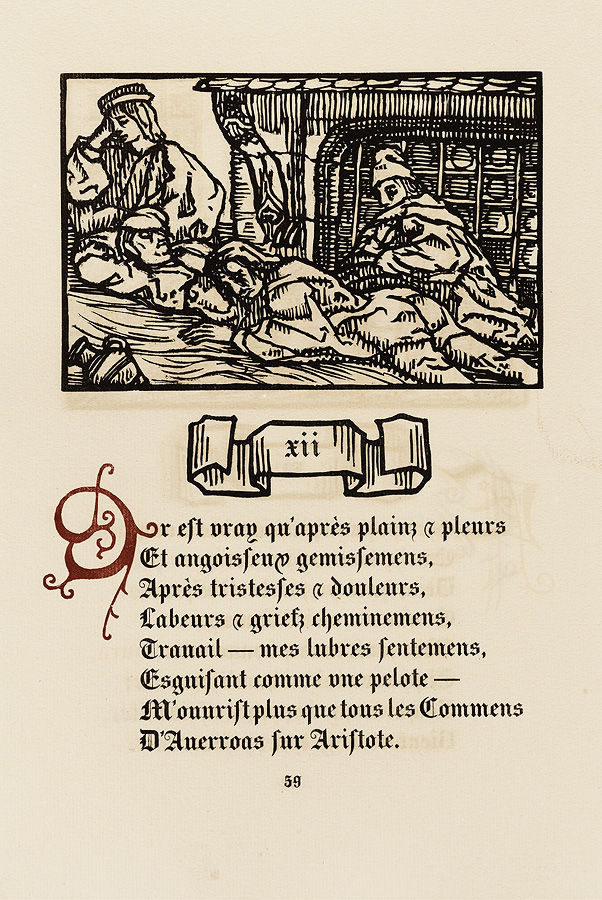 xii
Or eſt vray qu'après plainz ⁊ pleurs
Et angoiſſeux gemiſſemens,
Après triſteſſes ⁊ douleurs,
Labeurs ⁊ griefz cheminemens,
Trauail — mes lubres ſentemens,
Eſguiſant comme vne pelote —
M'ouuriſt plus que tous les Commens
D'Auerroas ſur Ariſtote.
59